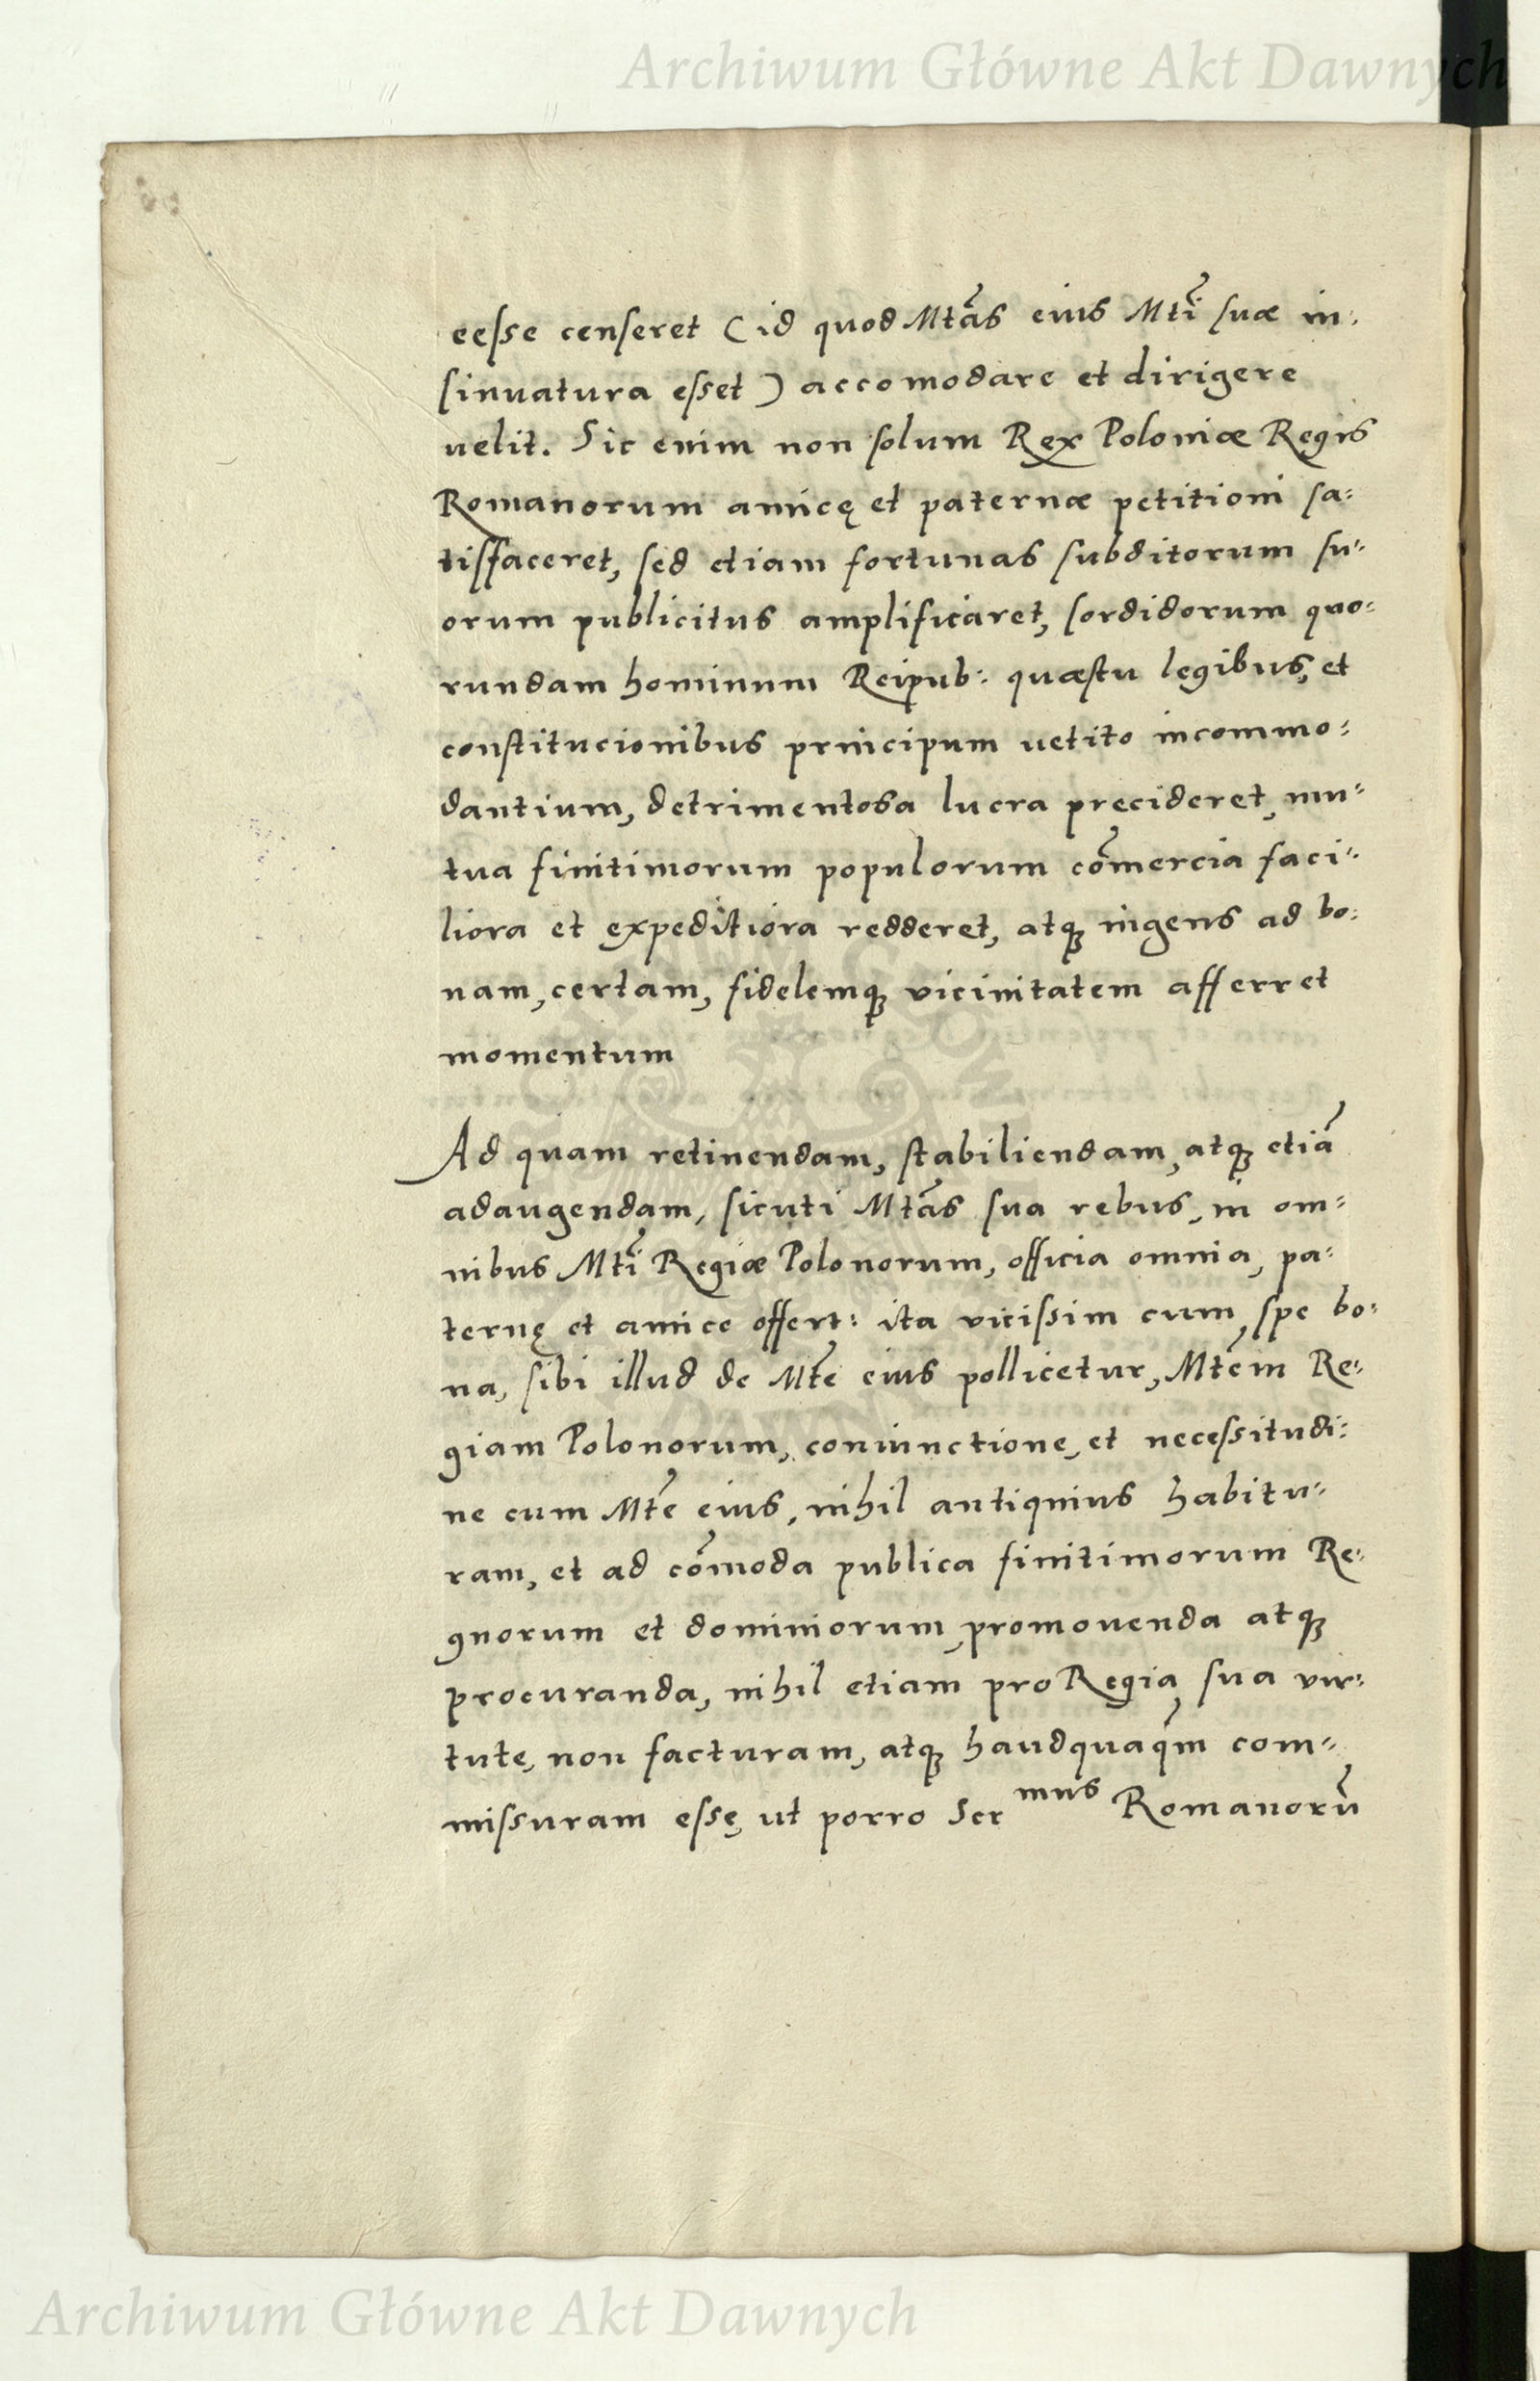 Archiwum Główne Akt Dawnych
eesse censeret (id quod Mtãs eius Mtĩ suæ in:
sinuatura esset) accomodare et dirigere
uelit. Sic enim non solum Rex Poloniæ Regis
Romanorum amicę et paternæ petitioni sa:
tisfaceret, sed etiam fortunas subditorum su:
orum publicitus amplificaret, sordidorum quo:
rundam hominum Reipub: quæstu legibus, et
constitucionibus principum uetito incommo:
dantium, detrimentosa lucra precideret, mu:
tua finitimorum populorum cõmercia faci:
liora et expeditiora redderet, atq; ingens ad bo:
nam, certam, fidelemq; vicinitatem afferret
momentum
Ad quam retinendam, stabiliendam, atq; etiã
adaugendam, sicuti Mtãs sua rebus, in om:
nibus Mtĩ Regiæ Polonorum, officia omnia, pa:
ternę et amice offert: ita vicissim cum spe bo:
na, sibi illud de Mtẽ eius pollicetur, Mtẽm Re:
giam Polonorum, coniunctione, et necessitudi:
ne cum Mtẽ eius, nihil antiquius habitu:
ram, et ad cõmoda publica finitimorum Re:
gnorum et dominiorum promouenda atq;
procuranda, nihil etiam pro Regia sua vir:
tute, non facturam, atq; haudquaq̃m com:
missuram esse, ut porro Ser mus Romanorũ
Archiwum Główne Akt Dawnych